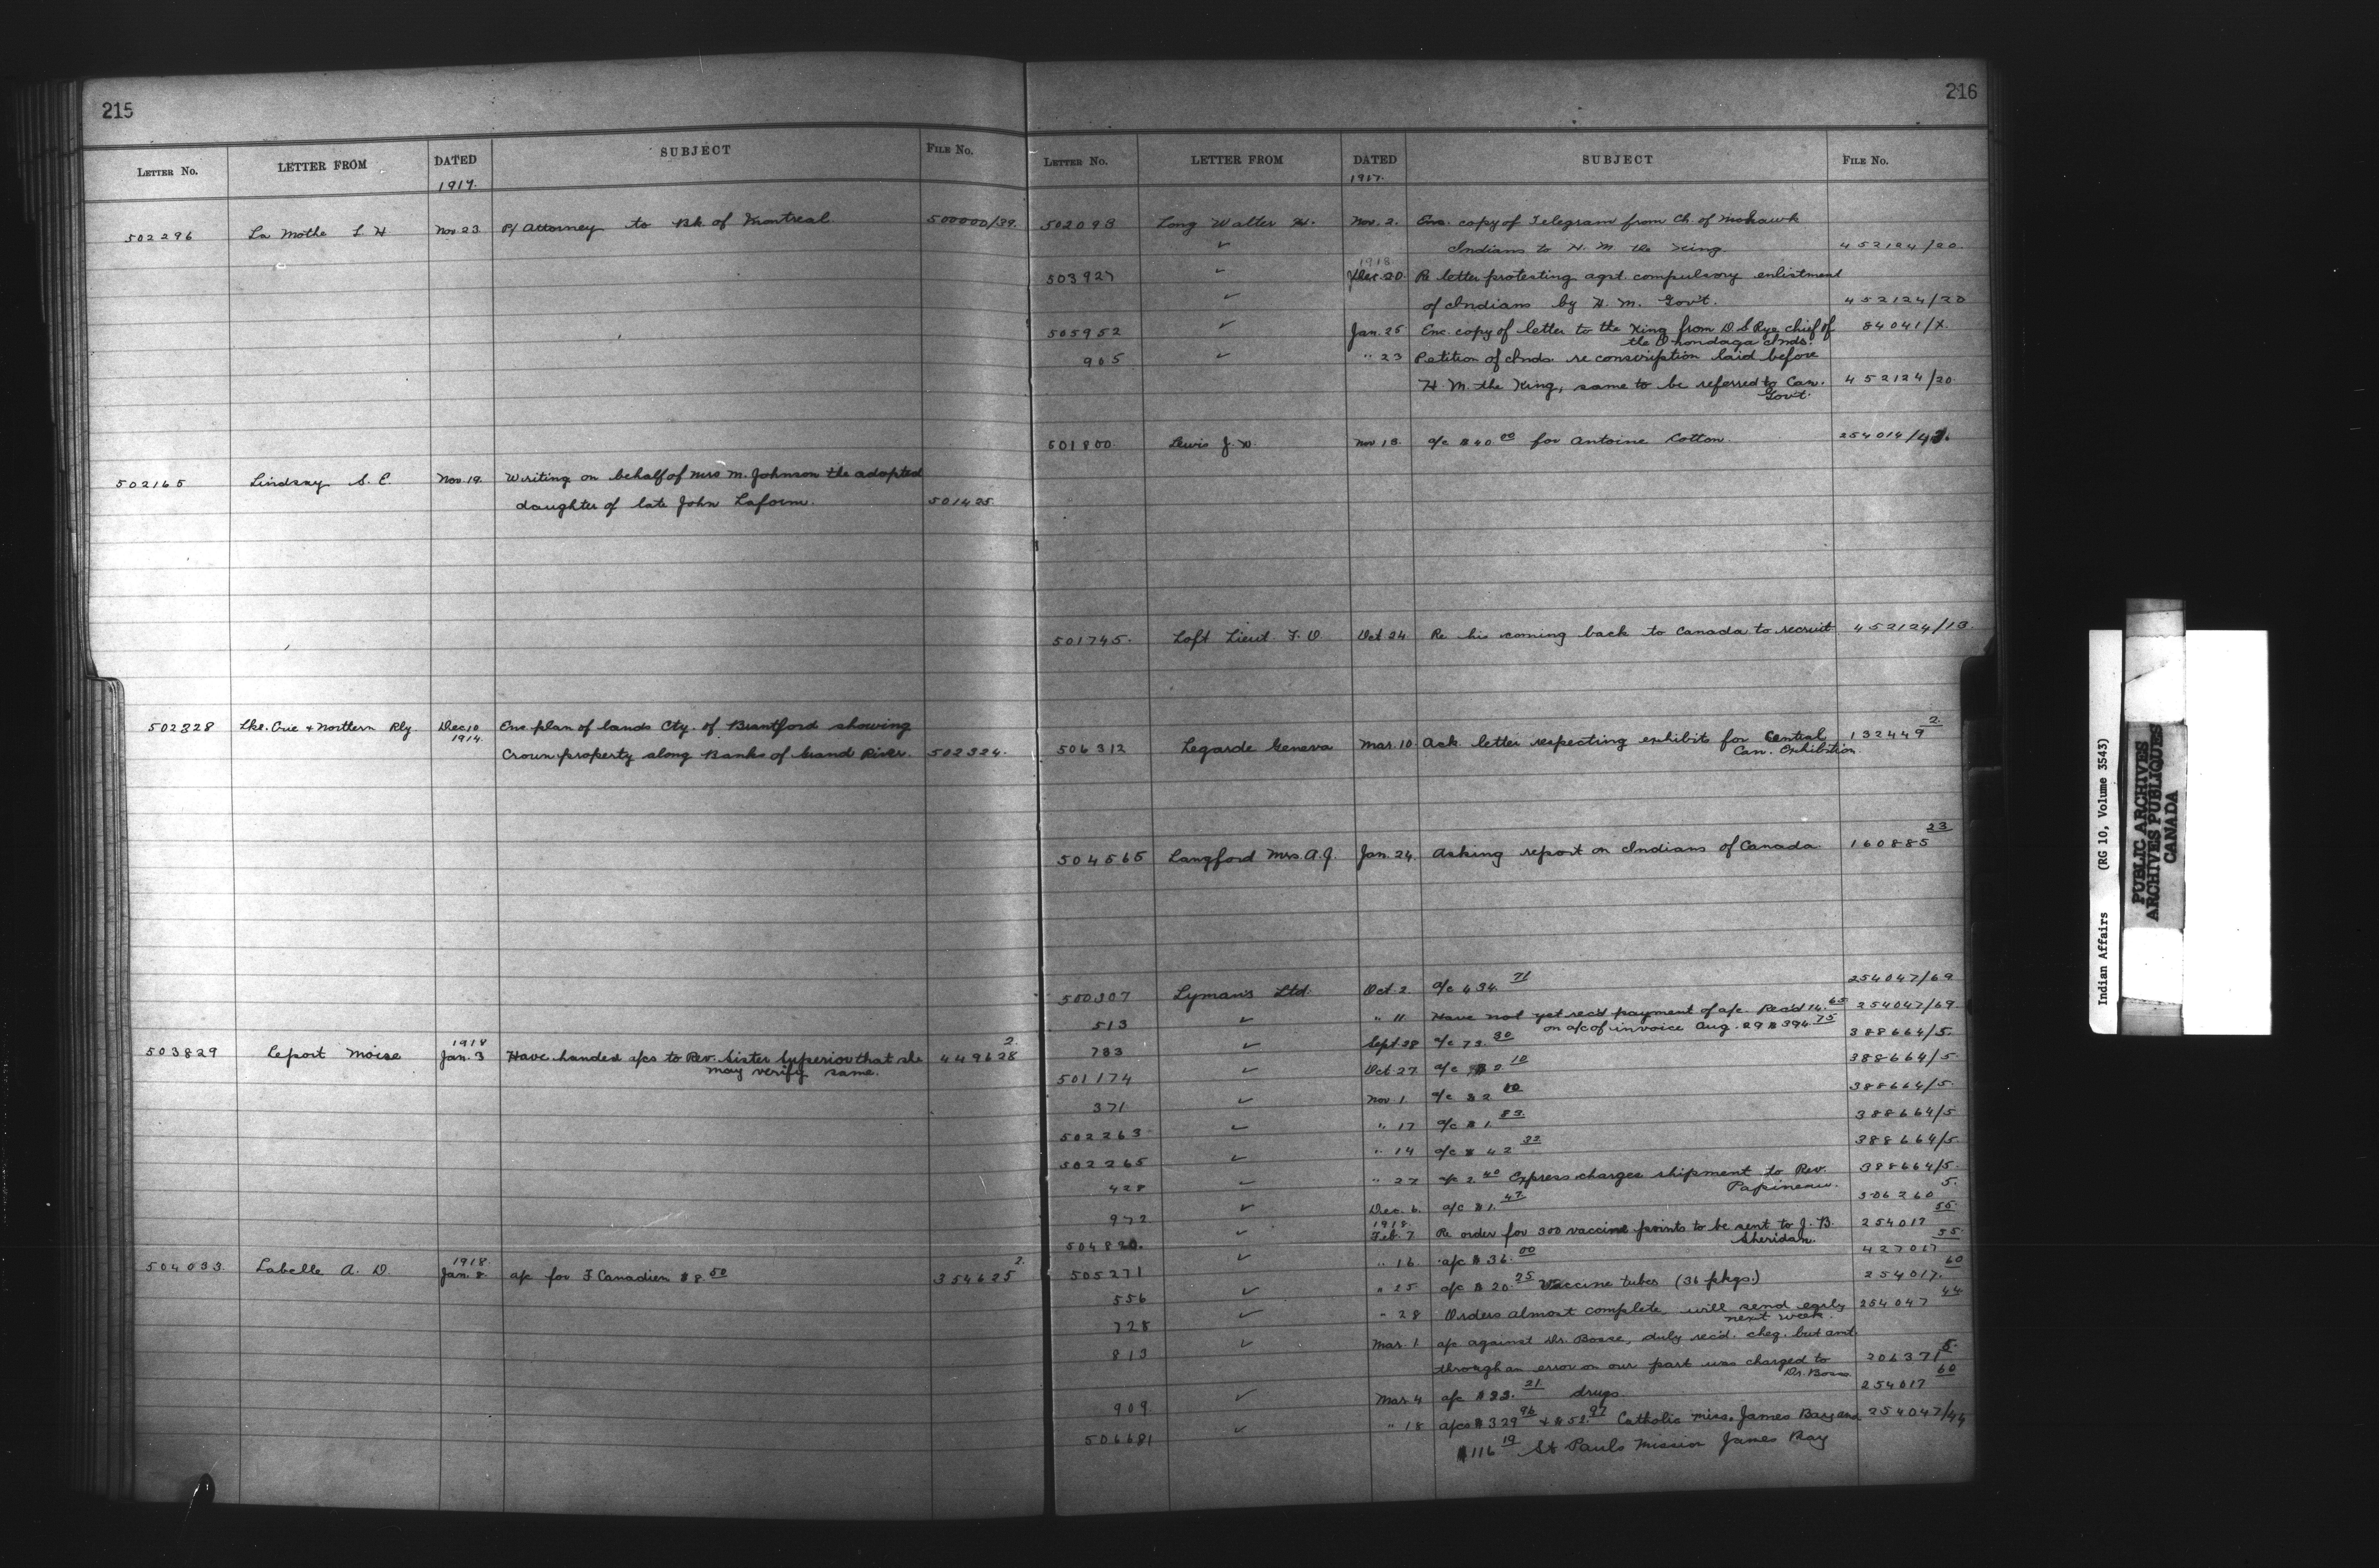 215
LETTER No. LETTER FROM DATED SUBJECT FILE No.
1917.
502296 La Mothe L H Nov 23 P/ Attorney to Bk. of Montreal 500000/39.
502165 Lindsay S. E. Nov. 19. Writing on behalf of Mrs M. Johnson the adopted
daughter of late John Laform. 501425
502328 Lke. Erie + Northern Rly Dec 10 Enc plan of lands Cty. of Brantford showing
1914. Crown property along Banks of Grand River. 502324.
1918 2.
503829 Leport Moise Jan. 3 Have handed a/cs to Rev. Sister Superior that she 449628
may verify same.
1918. 2.
504033. Labelle A. D. Jan. 8. a/c for F Canadien $8.50 354625
216
LETTER No. LETTER FROM DATED SUBJECT FILE No.
1917.
502093 Long Walter H. Nov. 2. Enc. copy of Telegram from Ch. of Mohawk
✓ Indians to H. M. the King. 452124/20.
1918
503927 ✓ Dec. 20. Re letter protesting agst. compulsory enlistment
✓ of Indians by H. M. Gov't. 452124/20
505952 ✓ Jan. 25 Enc. copy of letter to the King from D. S Rye chief of 84041/X.
the Onondaga Inds.
905 ✓ " 23 Petition of Inds. re conscription laid before
H. M. the King, same to be referred to Can. 452124/20.
Gov't.
501800. Lewis J. Nov 13. a/c $40.00 for Antoine Cotton. 254014/
501745. Loft Lieut. F. O Oct 24 Re his coming back to Canada to recruit 452124/13.
2.
506312 Legarde Geneva Mar. 10 Ack letter respecting exhibit for Central 132449
Can. Exhibition
23
504565 Langford Mrs. A. J. Jan. 24. Asking report on Indians of Canada. 160885
500307 Lyman's Ltd. Oct. 2. a/c $34.71 254047/69
513 ✓ " 11 Have not yet rec'd payment of a/c. Rec'd 14.65 254047/69.
on a/c of invoice Aug. 29 $394.75
783 ✓ Sept 28 a/c 73.30 388664/5.
501174 ✓ Oct. 27 a/c $2.10 388664/5.
371 ✓ Nov 1. a/c $2 10 388664/5.
502263 ✓ " 17 a/c $1.83. 388664/5
502265 ✓ " 14 a/c $42 32 388664/5.
428 ✓ " 27 a/c 2.40 Express charges shipment to Rev. 388664/5.
Papineau. 5.
972 ✓ Dec. 6. a/c $1.47 306260
1918. 55
504820. ✓ Feb. 7 Re order for 300 vaccine points to be sent to J. B. 254017
Sheridan. 55.
505271 ✓ " 16 a/c $36.00 427017
60
556 ✓ " 25 a/c $20.25 Vaccine tubes (36 pkgs.) 254017.
44
728 ✓ " 28 Orders almost complete will send early 254047
next week.
813 ✓ Mar. 1 a/c against Dr. Bosse, duly rec'd. cheq. but amt.
through an error on our part was charged to 20637/5.
Dr. Bosse. 60
909. ✓ Mar. 4 a/c $33.21 drugs. 254017
506681 ✓ " 18 a/cs $329 96 + $52.97 Catholic miss. James Bay and 254047/44
$116 19 St Pauls Mission James Bay
Indian Affairs (RG 10, Volume 3543)
PUBLIC ARCHIVES
ARCHIVES PUBLIQUES
CANADA